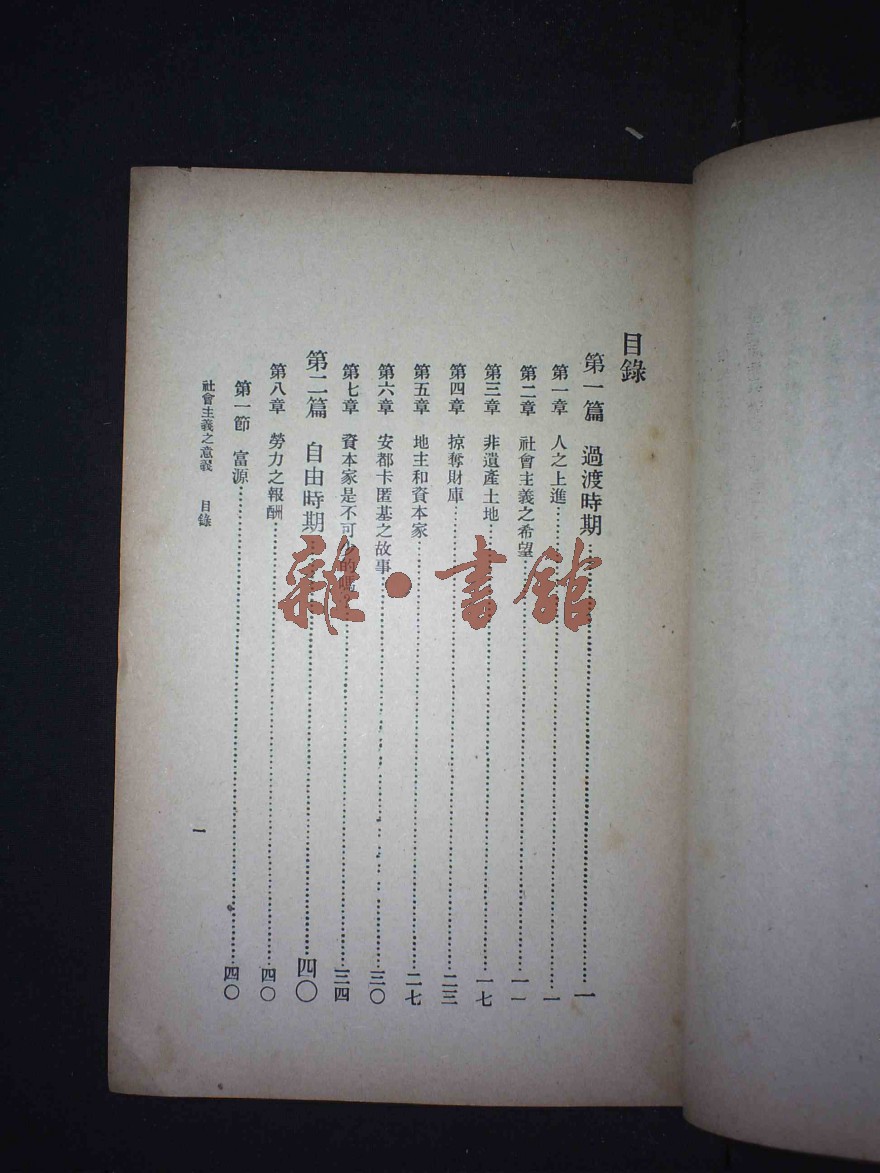 目錄
第一篇 過渡時期……一
第一章 人之上進……一
第二章 社會主義之希望……一一
第三章 非遺產土地……一七
第四章 掠奪財庫……二三
第五章 地主和資本家……二七
第六章 安都卡匿基之故事……三〇
第七章 資本家是不可少的嗎……三四
第二篇 自由時期……四〇
第八章 勞力之報酬……四〇
第一節 富源……四〇
社會主義之意義 目錄
一
雜·書館